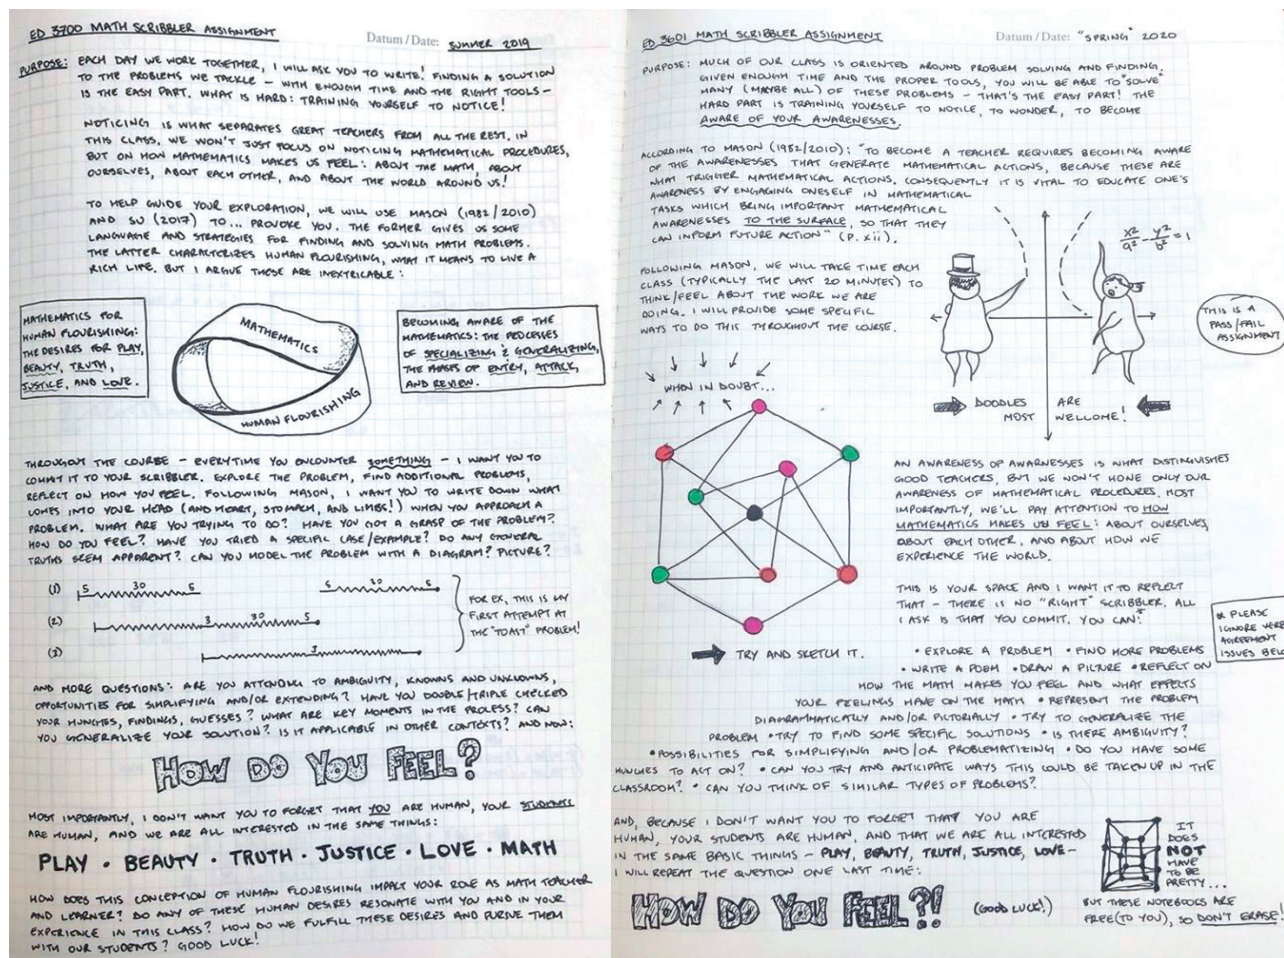 ED 3700 MATH SCRIBBLER ASSIGNMENT
Datum/Date: SUMMER 2019
PURPOSE: EACH DAY WE WORK TOGETHER, I WILL ASK YOU TO WRITE! FINDING A SOLUTION
TO THE PROBLEMS WE TACKLE – WITH ENOUGH TIME AND THE RIGHT TOOLS –
IS THE EASY PART. WHAT IS HARD: TRAINING YOURSELF TO NOTICE!
NOTICING IS WHAT SEPARATES GREAT TEACHERS FROM ALL THE REST. IN
THIS CLASS, WE WON'T JUST FOCUS ON NOTICING MATHEMATICAL PROCEDURES,
BUT ON HOW MATHEMATICS MAKES US FEEL: ABOUT THE MATH, ABOUT
OURSELVES, ABOUT EACH OTHER, AND ABOUT THE WORLD AROUND US!
TO HELP GUIDE YOUR EXPLORATION, WE WILL USE MASON (1982/2010)
AND SU (2017) TO... PROVOKE YOU. THE FORMER GIVES US SOME
LANGUAGE AND STRATEGIES FOR FINDING AND SOLVING MATH PROBLEMS.
THE LATTER CHARACTERIZES HUMAN FLOURISHING, WHAT IT MEANS TO LIVE A
RICH LIFE. BUT I ARGUE THESE ARE INEXTRICABLE:
MATHEMATICS FOR
HUMAN FLOURISHING:
THE DESIRES FOR PLAY,
BEAUTY, TRUTH,
JUSTICE, AND LOVE.
MATHEMATICS
HUMAN FLOURISHING
BECOMING AWARE OF THE
MATHEMATICS: THE PROCESSES
OF SPECIALIZING & GENERALIZING,
THE PHASES OF ENTRY, ATTACK,
AND REVIEW.
THROUGHOUT THE COURSE – EVERYTIME YOU ENCOUNTER SOMETHING – I WANT YOU TO
COMMIT IT TO YOUR SCRIBBLER. EXPLORE THE PROBLEM, FIND ADDITIONAL PROBLEMS,
REFLECT ON HOW YOU FEEL. FOLLOWING MASON, I WANT YOU TO WRITE DOWN WHAT
COMES INTO YOUR HEAD (AND HEART, STOMACH, AND LIMBS!) WHEN YOU APPROACH A
PROBLEM. WHAT ARE YOU TRYING TO DO? HAVE YOU GOT A GRASP OF THE PROBLEM?
HOW DO YOU FEEL? HAVE YOU TRIED A SPECIAL CASE/EXAMPLE? DO ANY GENERAL
TRUTHS SEEM APPARENT? CAN YOU MODEL THE PROBLEM WITH A DIAGRAM? PICTURE?
(1) 5 30 5
(2) 3 30 5
(3) 3
FOR EX, THIS IS MY
FIRST ATTEMPT AT
THE "TOAST" PROBLEM!
AND MORE QUESTIONS: ARE YOU ATTENDING TO AMBIGUITY, KNOWNS AND UNKNOWNS,
OPPORTUNITIES FOR SIMPLIFYING AND/OR EXTENDING? HAVE YOU DOUBLE/TRIPLE CHECKED
YOUR HUNCHES, FINDINGS, GUESSES? WHAT ARE KEY MOMENTS IN THE PROCESS? CAN
YOU GENERALIZE YOUR SOLUTION? IS IT APPLICABLE IN OTHER CONTEXTS? AND NOW:
HOW DO YOU FEEL?
MOST IMPORTANTLY, I DON'T WANT YOU TO FORGET THAT YOU ARE HUMAN, YOUR STUDENTS
ARE HUMAN, AND WE ARE ALL INTERESTED IN THE SAME THINGS:
PLAY · BEAUTY · TRUTH · JUSTICE · LOVE · MATH
HOW DOES THIS CONCEPTION OF HUMAN FLOURISHING IMPACT YOUR ROLE AS MATH TEACHER
AND LEARNER? DO ANY OF THESE HUMAN DESIRES RESONATE WITH YOU AND IN YOUR
EXPERIENCE IN THIS CLASS? HOW DO WE FULFILL THESE DESIRES AND PURSUE THEM
WITH OUR STUDENTS? GOOD LUCK!
ED 3601 MATH SCRIBBLER ASSIGNMENT
Datum/Date: "SPRING" 2020
PURPOSE: MUCH OF OUR CLASS IS ORIENTED AROUND PROBLEM SOLVING AND FINDING.
GIVEN ENOUGH TIME AND THE PROPER TOOLS, YOU WILL BE ABLE TO "SOLVE"
MANY (MAYBE ALL) OF THESE PROBLEMS – THAT'S THE EASY PART! THE
HARD PART IS TRAINING YOURSELF TO NOTICE, TO WONDER, TO BECOME
AWARE OF YOUR AWARENESSES.
ACCORDING TO MASON (1982/2010): "TO BECOME A TEACHER REQUIRES BECOMING AWARE
OF THE AWARENESSES THAT GENERATE MATHEMATICAL ACTIONS, BECAUSE THESE ARE
WHAT TRIGGER MATHEMATICAL ACTIONS. CONSEQUENTLY IT IS VITAL TO EDUCATE ONE'S
AWARENESS BY ENGAGING ONESELF IN MATHEMATICAL
TASKS WHICH BRING IMPORTANT MATHEMATICAL
AWARENESSES TO THE SURFACE, SO THAT THEY
CAN INFORM FUTURE ACTION" (P. xii).
x²/a² - y²/b² = 1
FOLLOWING MASON, WE WILL TAKE TIME EACH
CLASS (TYPICALLY THE LAST 20 MINUTES) TO
THINK/FEEL ABOUT THE WORK WE ARE
DOING. I WILL PROVIDE SOME SPECIFIC
WAYS TO DO THIS THROUGHOUT THE COURSE.
THIS IS A
PASS/FAIL
ASSIGNMENT
DOODLES ARE
MOST WELCOME!
WHEN IN DOUBT...
TRY AND SKETCH IT.
AN AWARENESS OF AWARNESSES IS WHAT DISTINGUISHES
GOOD TEACHERS, BUT WE WON'T HONE ONLY OUR
AWARENESS OF MATHEMATICAL PROCEDURES. MOST
IMPORTANTLY, WE'LL PAY ATTENTION TO HOW
MATHEMATICS MAKES US FEEL: ABOUT OURSELVES,
ABOUT EACH OTHER, AND ABOUT HOW WE
EXPERIENCE THE WORLD.
THIS IS YOUR SPACE AND I WANT IT TO REFLECT
THAT – THERE IS NO "RIGHT" SCRIBBLER. ALL
I ASK IS THAT YOU COMMIT. YOU CAN:*
* PLEASE
IGNORE VERB
AGREEMENT
ISSUES BELOW
• EXPLORE A PROBLEM • FIND MORE PROBLEMS
• WRITE A POEM • DRAW A PICTURE • REFLECT ON
HOW THE MATH MAKES YOU FEEL AND WHAT EFFECTS
YOUR FEELINGS HAVE ON THE MATH • REPRESENT THE PROBLEM
DIAGRAMMATICALLY AND/OR PICTORIALLY • TRY TO GENERALIZE THE
PROBLEM • TRY TO FIND SOME SPECIFIC SOLUTIONS • IS THERE AMBIGUITY?
• POSSIBILITIES FOR SIMPLIFYING AND/OR PROBLEMATIZING • DO YOU HAVE SOME
HUNCHES TO ACT ON? • CAN YOU TRY AND ANTICIPATE WAYS THIS COULD BE TAKEN UP IN THE
CLASSROOM? • CAN YOU THINK OF SIMILAR TYPES OF PROBLEMS?
AND, BECAUSE I DON'T WANT YOU TO FORGET THAT YOU ARE
HUMAN, YOUR STUDENTS ARE HUMAN, AND THAT WE ARE ALL INTERESTED
IN THE SAME BASIC THINGS – PLAY, BEAUTY, TRUTH, JUSTICE, LOVE –
I WILL REPEAT THE QUESTION ONE LAST TIME:
IT
DOES
NOT
HAVE
TO BE
PRETTY...
HOW DO YOU FEEL?! (GOOD LUCK!)
BUT THESE NOTEBOOKS ARE
FREE (TO YOU), SO DON'T ERASE!